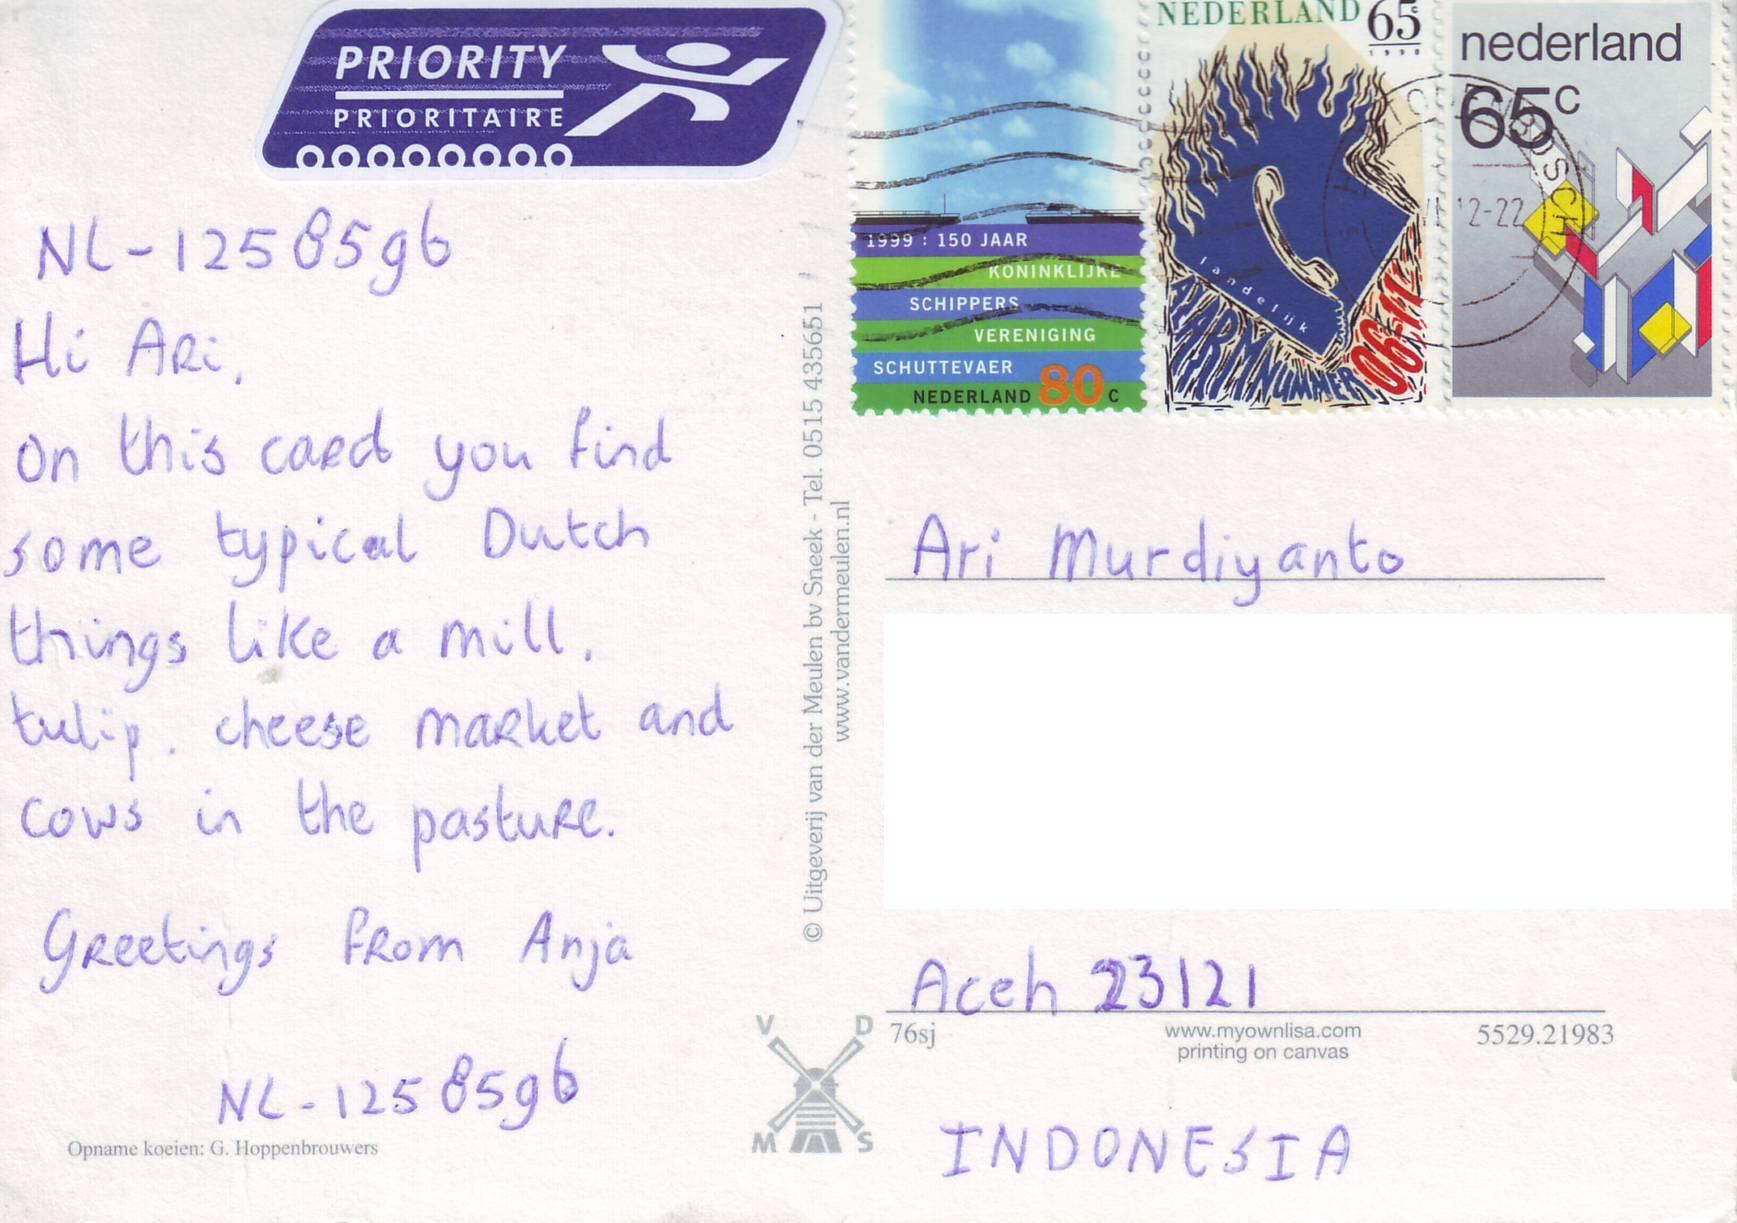 PRIORITY
PRIORITAIRE
1999 : 150 JAAR
KONINKLIJKE
SCHIPPERS
VERENIGING
SCHUTTEVAER
NEDERLAND 80 C
NEDERLAND 65 c
1990
landelijk
ALARMNUMMER 06-11
nederland
65 c
12-22
NL-1258596
Hi Ari,
on this card you find
some typical Dutch
things like a mill,
tulip, cheese market and
cows in the pasture.
Greetings from Anja
NL-1258596
Opname koeien: G. Hoppenbrouwers
© Uitgeverij van der Meulen bv Sneek - Tel. 0515 435651
www.vandermeulen.nl
V D
M S
Ari Murdiyanto
Aceh 23121
76sj
www.myownlisa.com
printing on canvas
5529.21983
INDONESIA